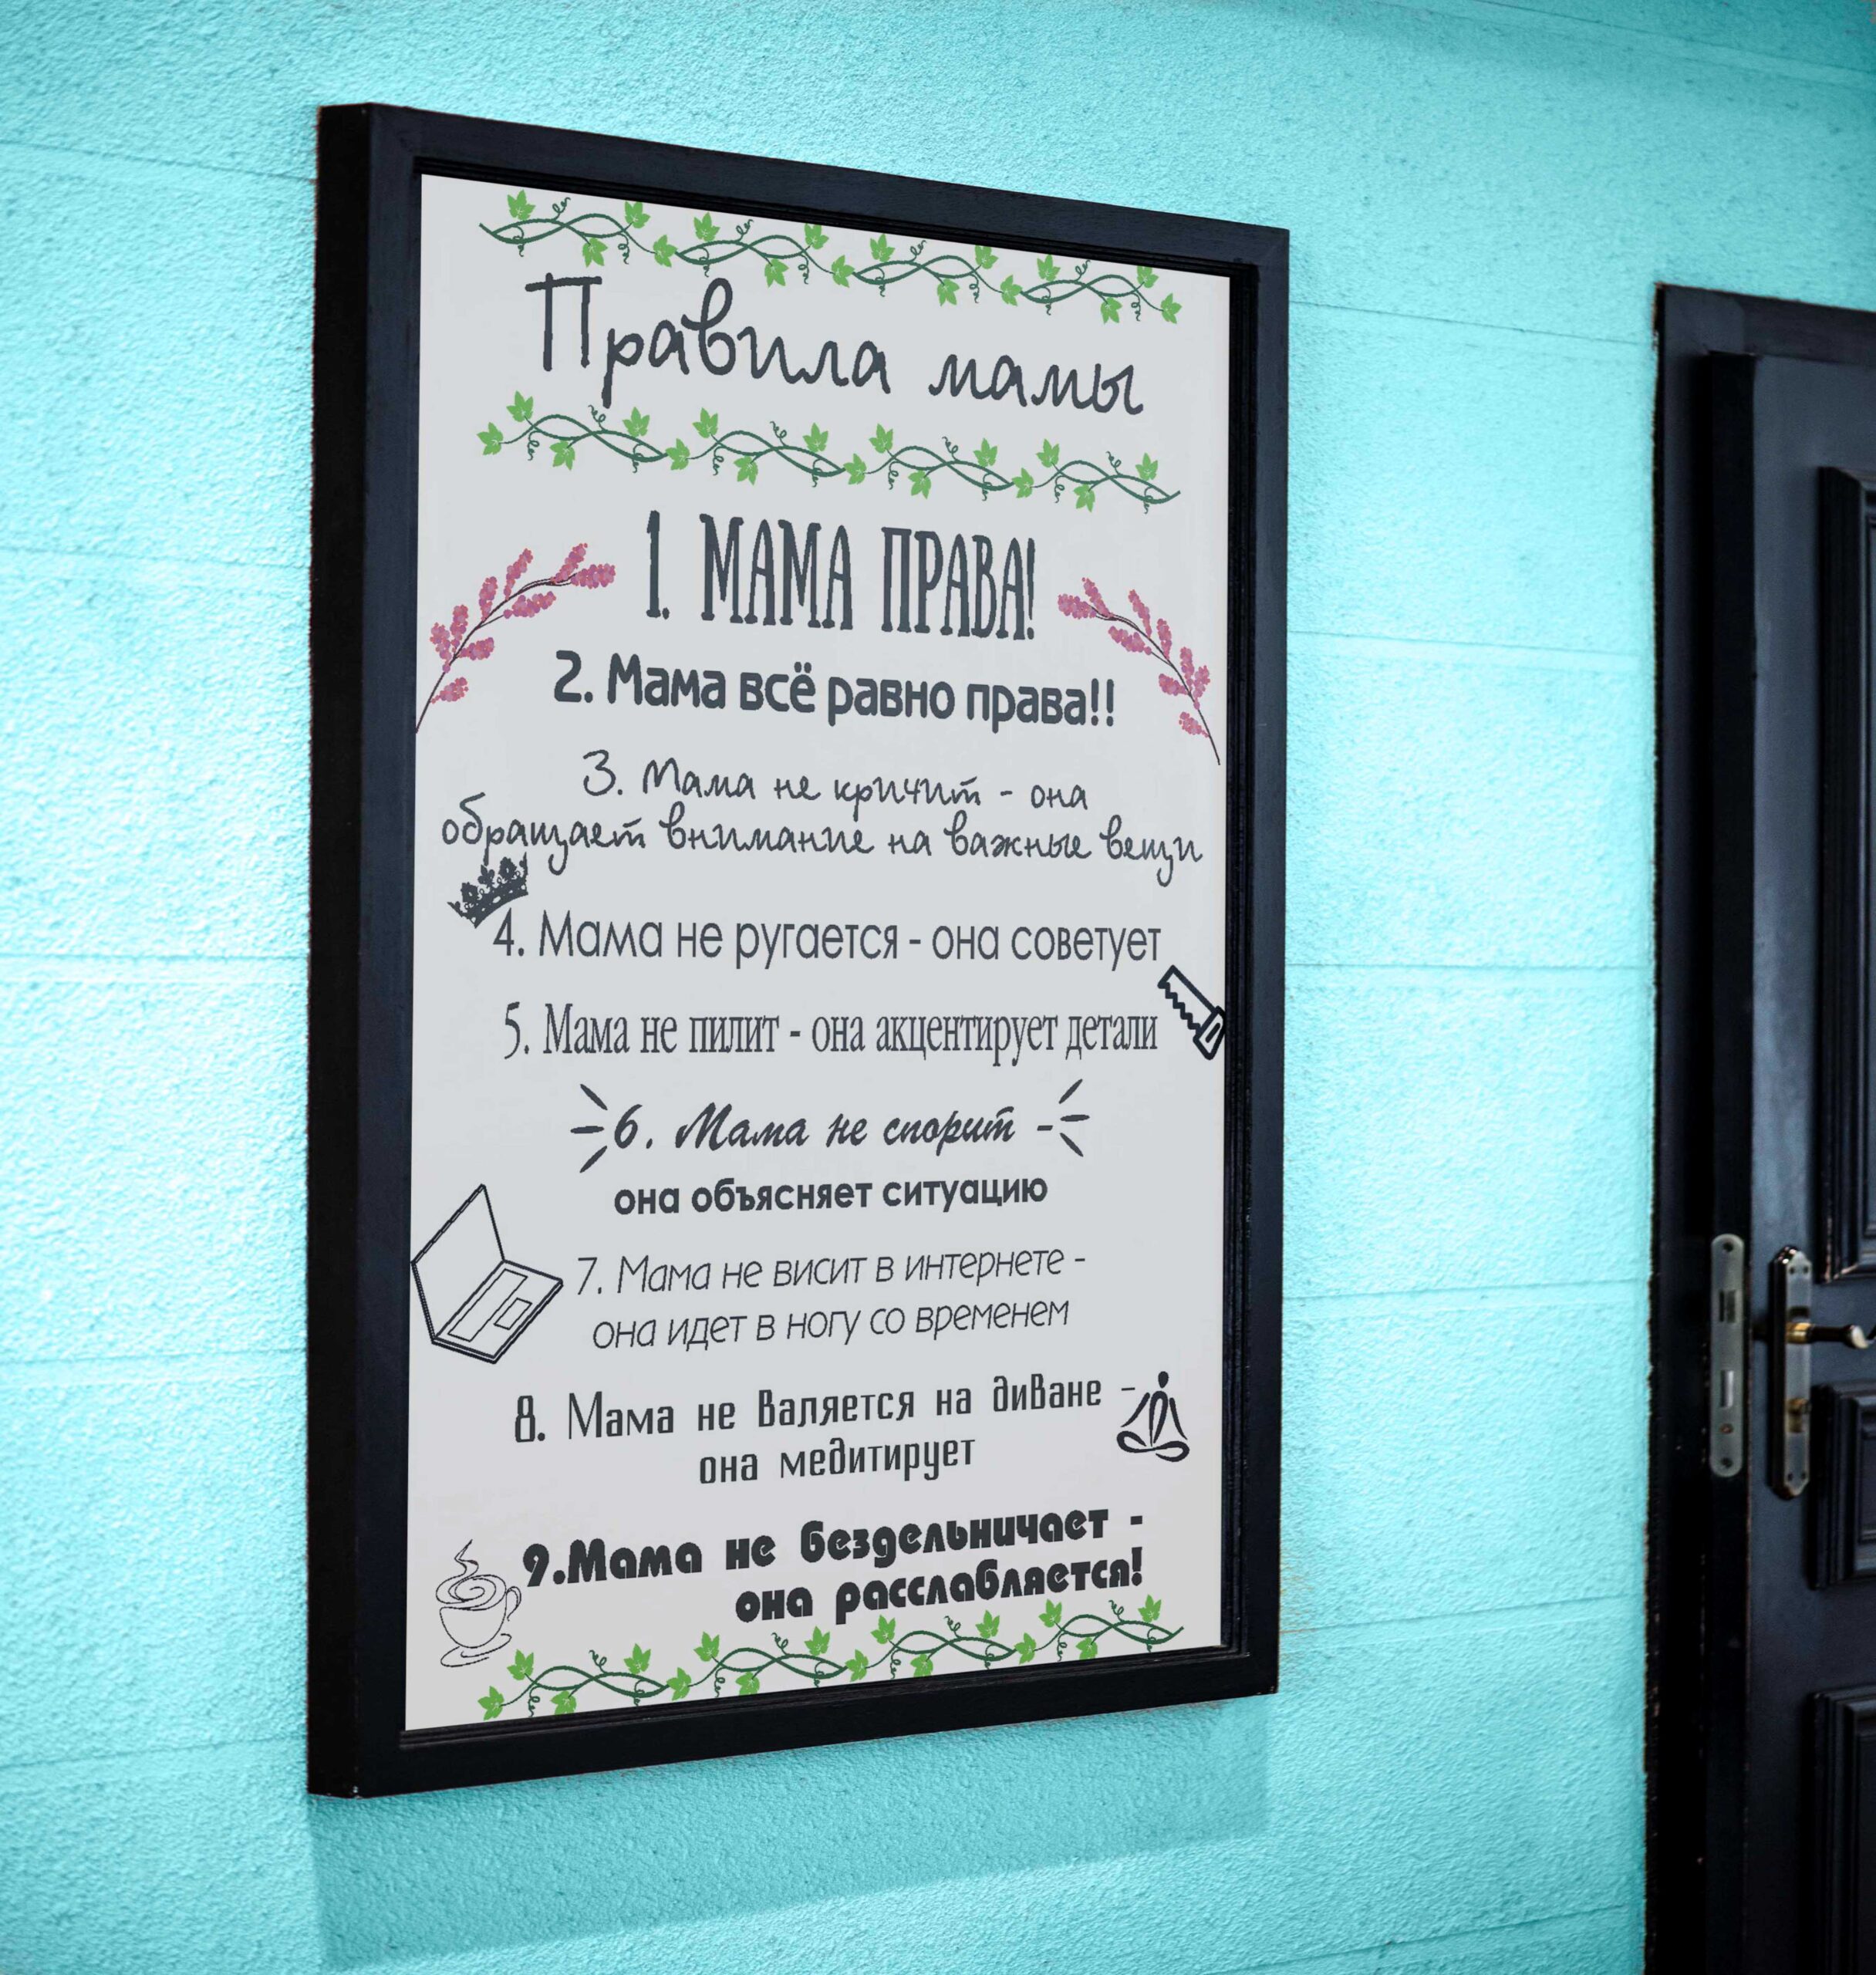 Правила мамы
1. МАМА ПРАВА!
2. Мама всё равно права!!
3. Мама не кричит - она
обращает внимание на важные вещи
4. Мама не ругается - она советует
5. Мама не пилит - она акцентирует детали
6. Мама не спорит -
она объясняет ситуацию
7. Мама не висит в интернете -
она идет в ногу со временем
8. Мама не валяется на диване -
она медитирует
9.Мама не бездельничает -
она расслабляется!